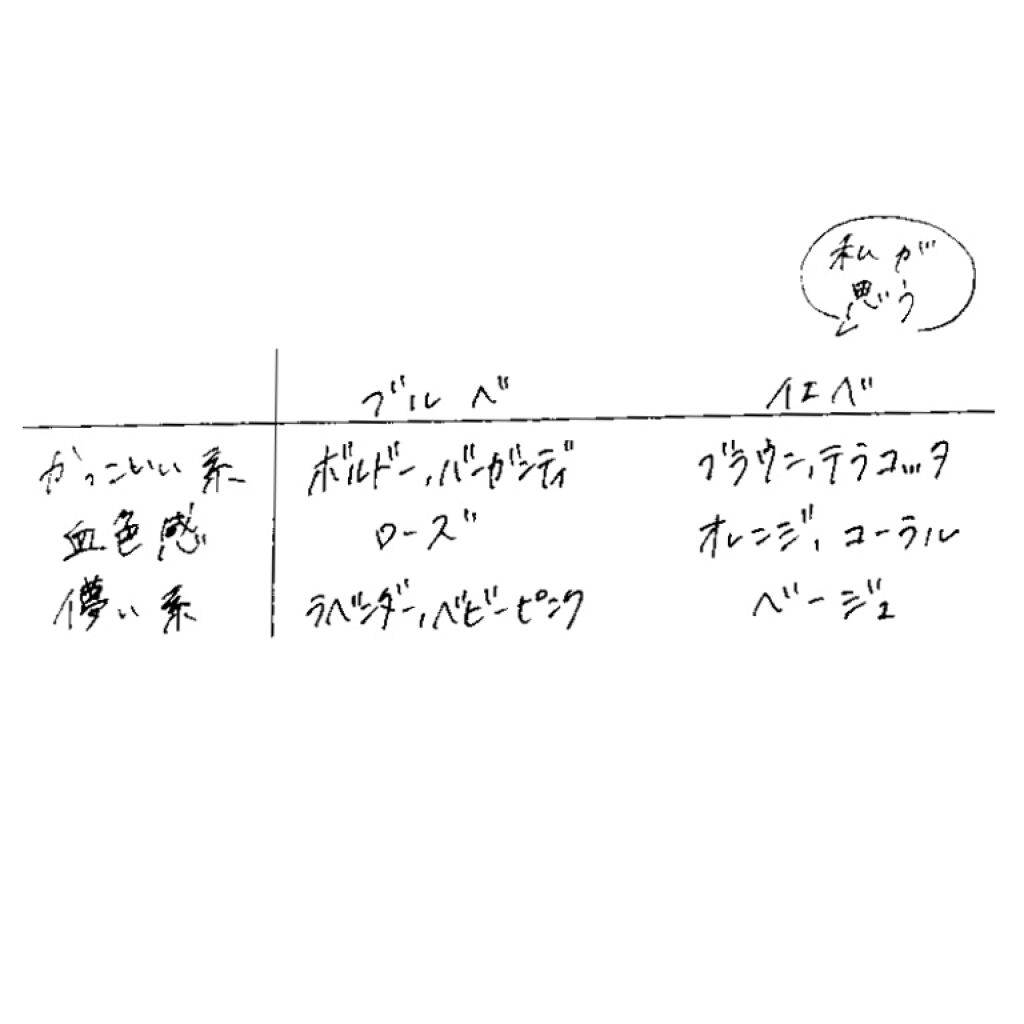 私が
思う
ブルベ イエベ
かっこいい系 ボルドー,バーガンディ ブラウン,テラコッタ
血色感 ローズ オレンジ,コーラル
儚い系 ラベンダー,ベビーピンク ベージュ